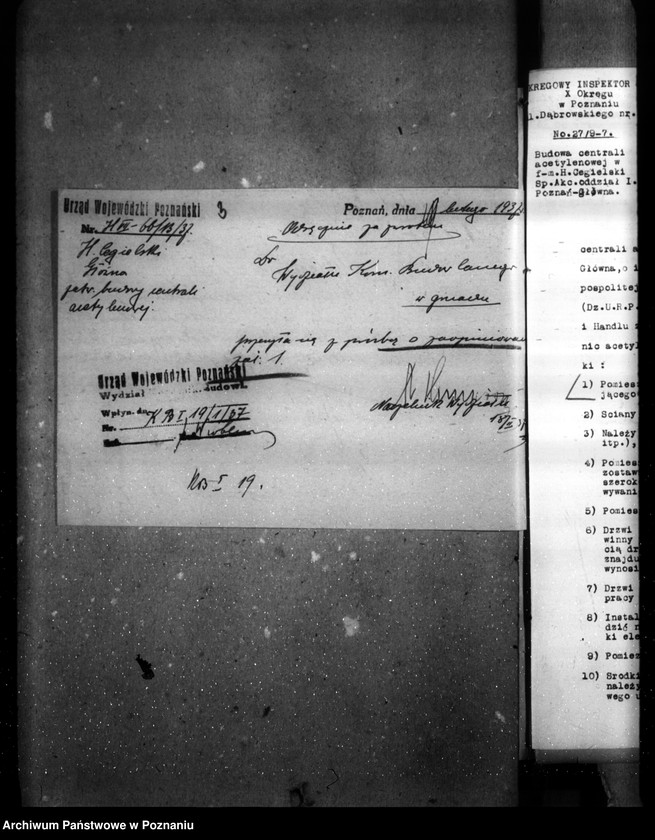 Urząd Wojewódzki Poznański 3
Nr. H VI-66/13/37.
H. Cegielski
Główna
bud. centrali
acetylenowej.
Poznań, dnia lutego 1937
Odręcznie za zwrotem
Do
Wydziału Kom. Budowlanego
w gmachu
przesyła się z prośbą o zaopiniowan
zał. 1.
Naczelnik Wydziału
Urząd Wojewódzki Poznański
Wydział
Wpłyn. dn.
KB I 19/1/37
Nr.
KB I 19.
KRĘGOWY INSPEKTOR
X Okręgu
w Poznaniu
l.Dąbrowskiego nr.
No.27/9-7.
Budowa centrali
acetylenowej w
f-m.H.Cegielski
Sp.Akc.oddział I.
Poznań-Główna.
centrali a
Główna,o i
pospolitej
(Dz.U.R.P.
i Handlu z
nic acetyl
ki :
1) Pomies
jącego
2) Ściany
3) Należy
itp.),
4) Pomies
zostaw
szerok
wywani
5) Pomies
6) Drzwi
winny
cią dr
znajdu
wynosi
7) Drzwi
pracy
8) Instal
dzić n
ki ele
9) Pomiez
10) Środki
należy
wego u
Archiwum Państwowe w Poznaniu